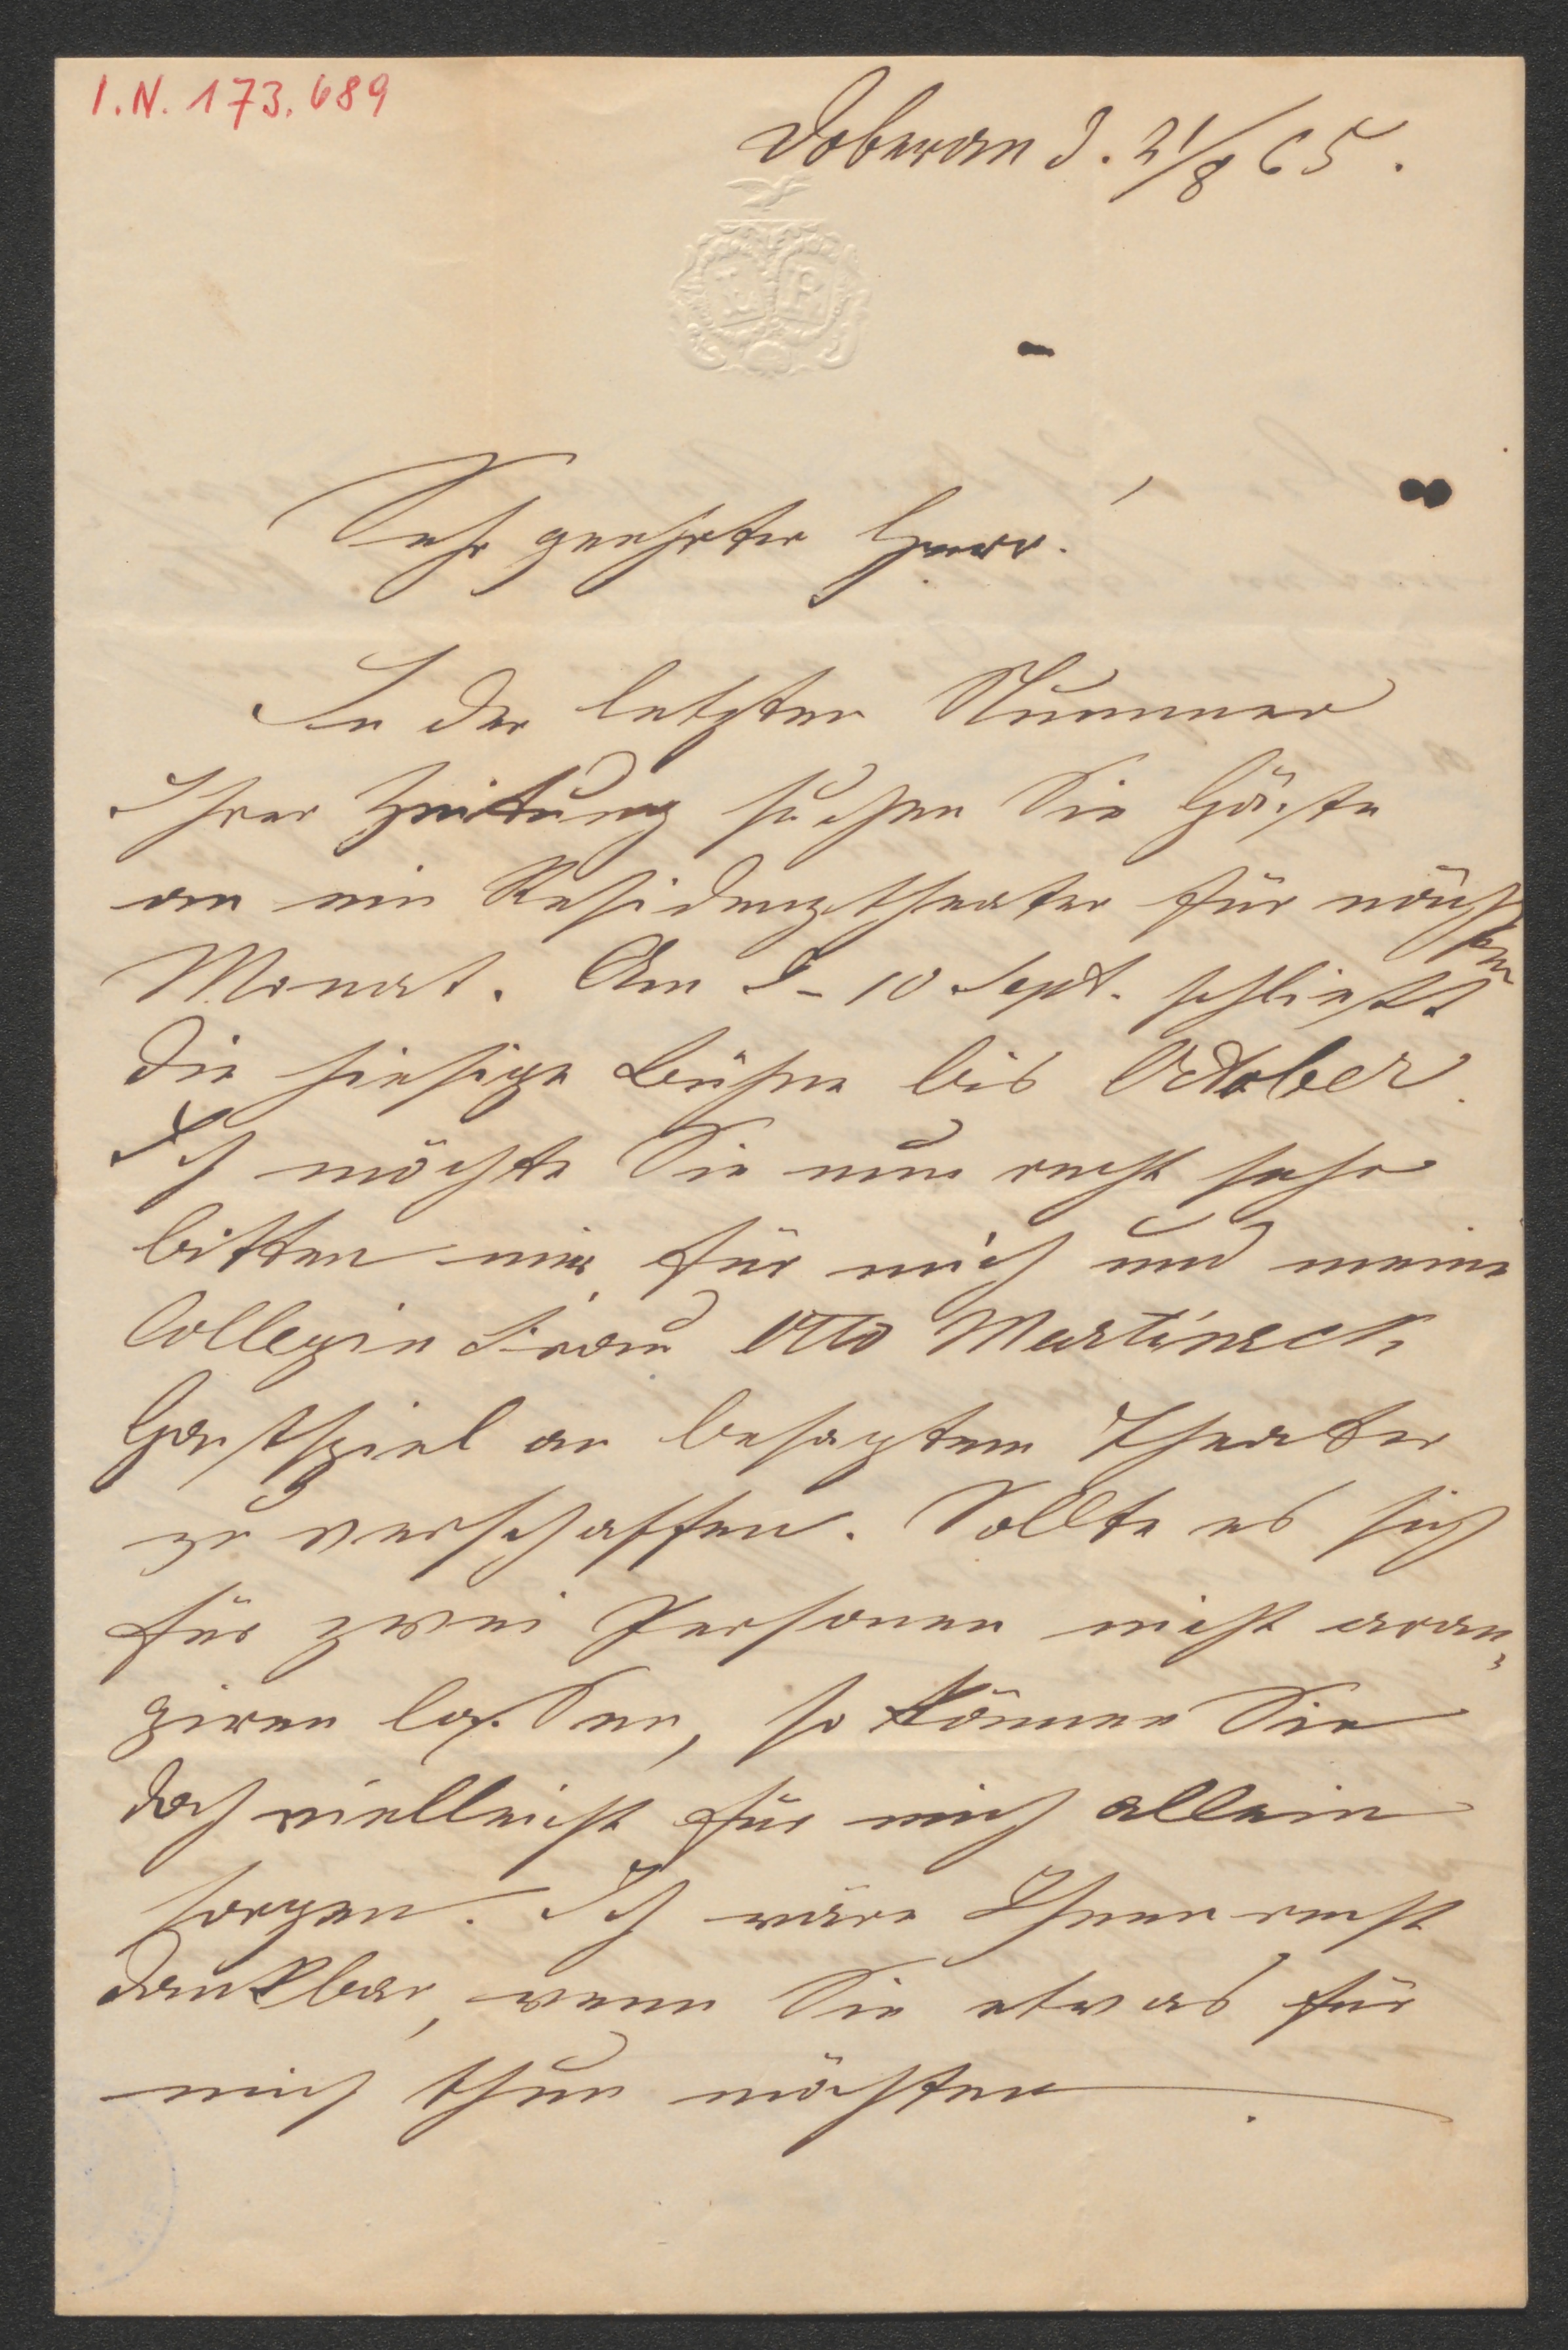 I.N. 173.689
Doberan d. 21/8 65.
Sehr geehrter Herr!
In der letzten Nummer
Ihrer Zeitung suchen Sie Gäste
an ein Residenztheater für nächsten
Monat. Am 9-10 Sept. schließt
die hiesige Bühne bis October.
Ich möchte Sie nun recht sehr
bitten mir für mich und meine
Collegin Frau Otto Martineck
Gastspiel an besagtem Theater
zu verschaffen. Sollte es sich
für zwei Personen nicht aran-
giren lassen, so können Sie
doch vielleicht für mich allein
sorgen. Ich wäre Ihnen recht
dankbar, wenn Sie etwas für
mich thun möchten.